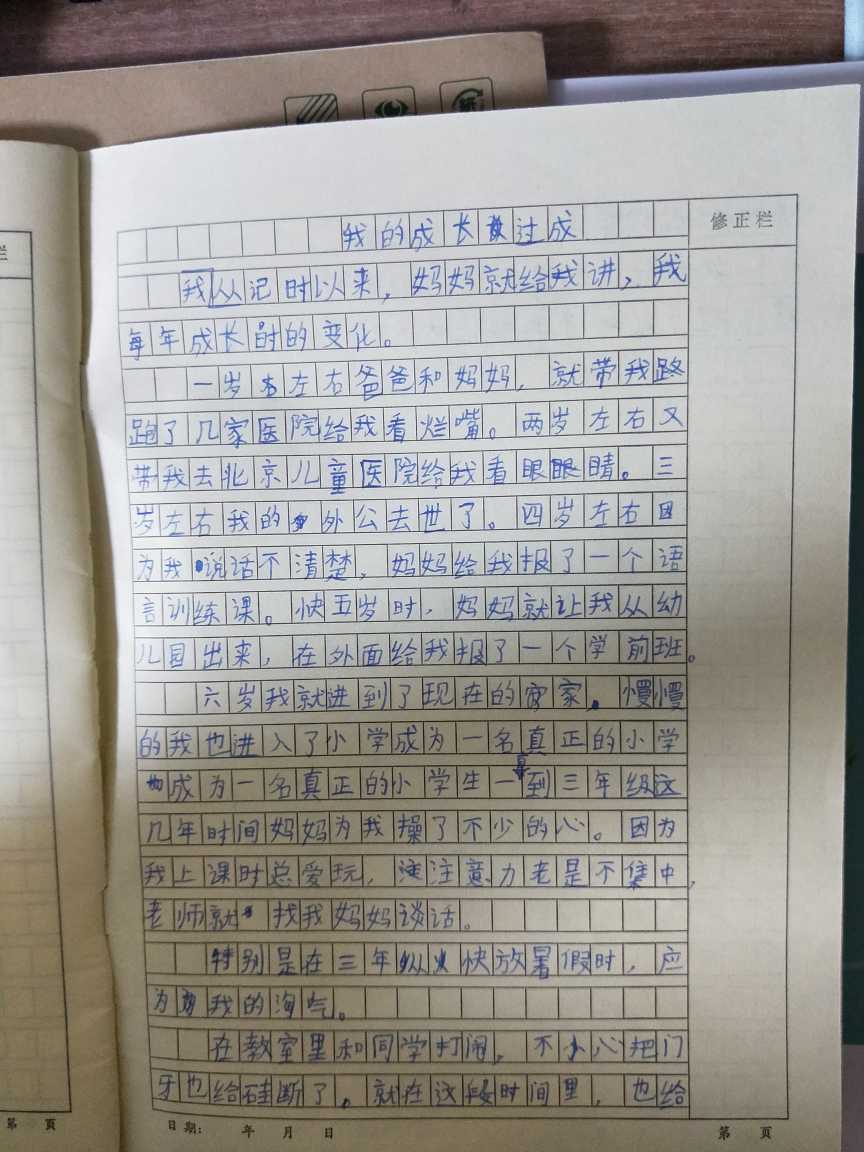 我的成长过成
修正栏
我从记时以来，妈妈就给我讲，我
每年成长时的变化。
一岁左右爸爸和妈妈，就带我路
跑了几家医院给我看烂嘴。两岁左右又
带我去北京儿童医院给我看眼眼睛。三
岁左右我的外公去世了。四岁左右因
为我说话不清楚，妈妈给我报了一个语
言训练课。快五岁时，妈妈就让我从幼
儿园出来，在外面给我报了一个学前班。
六岁我就进到了现在的家，慢慢
的我也进入了小学成为一名真正的小学
成为一名真正的小学生一直到三年级这
几年时间妈妈为我操了不少的心。因为
我上课时总爱玩，注意力老是不集中，
老师就找我妈妈谈话。
特别是在三年快放暑假时，应
为我的淘气。
在教室里和同学打闹，不小心把门
牙也给硅断了。就在这段时间里，也给
日期： 年 月 日
第 页
第 页
栏